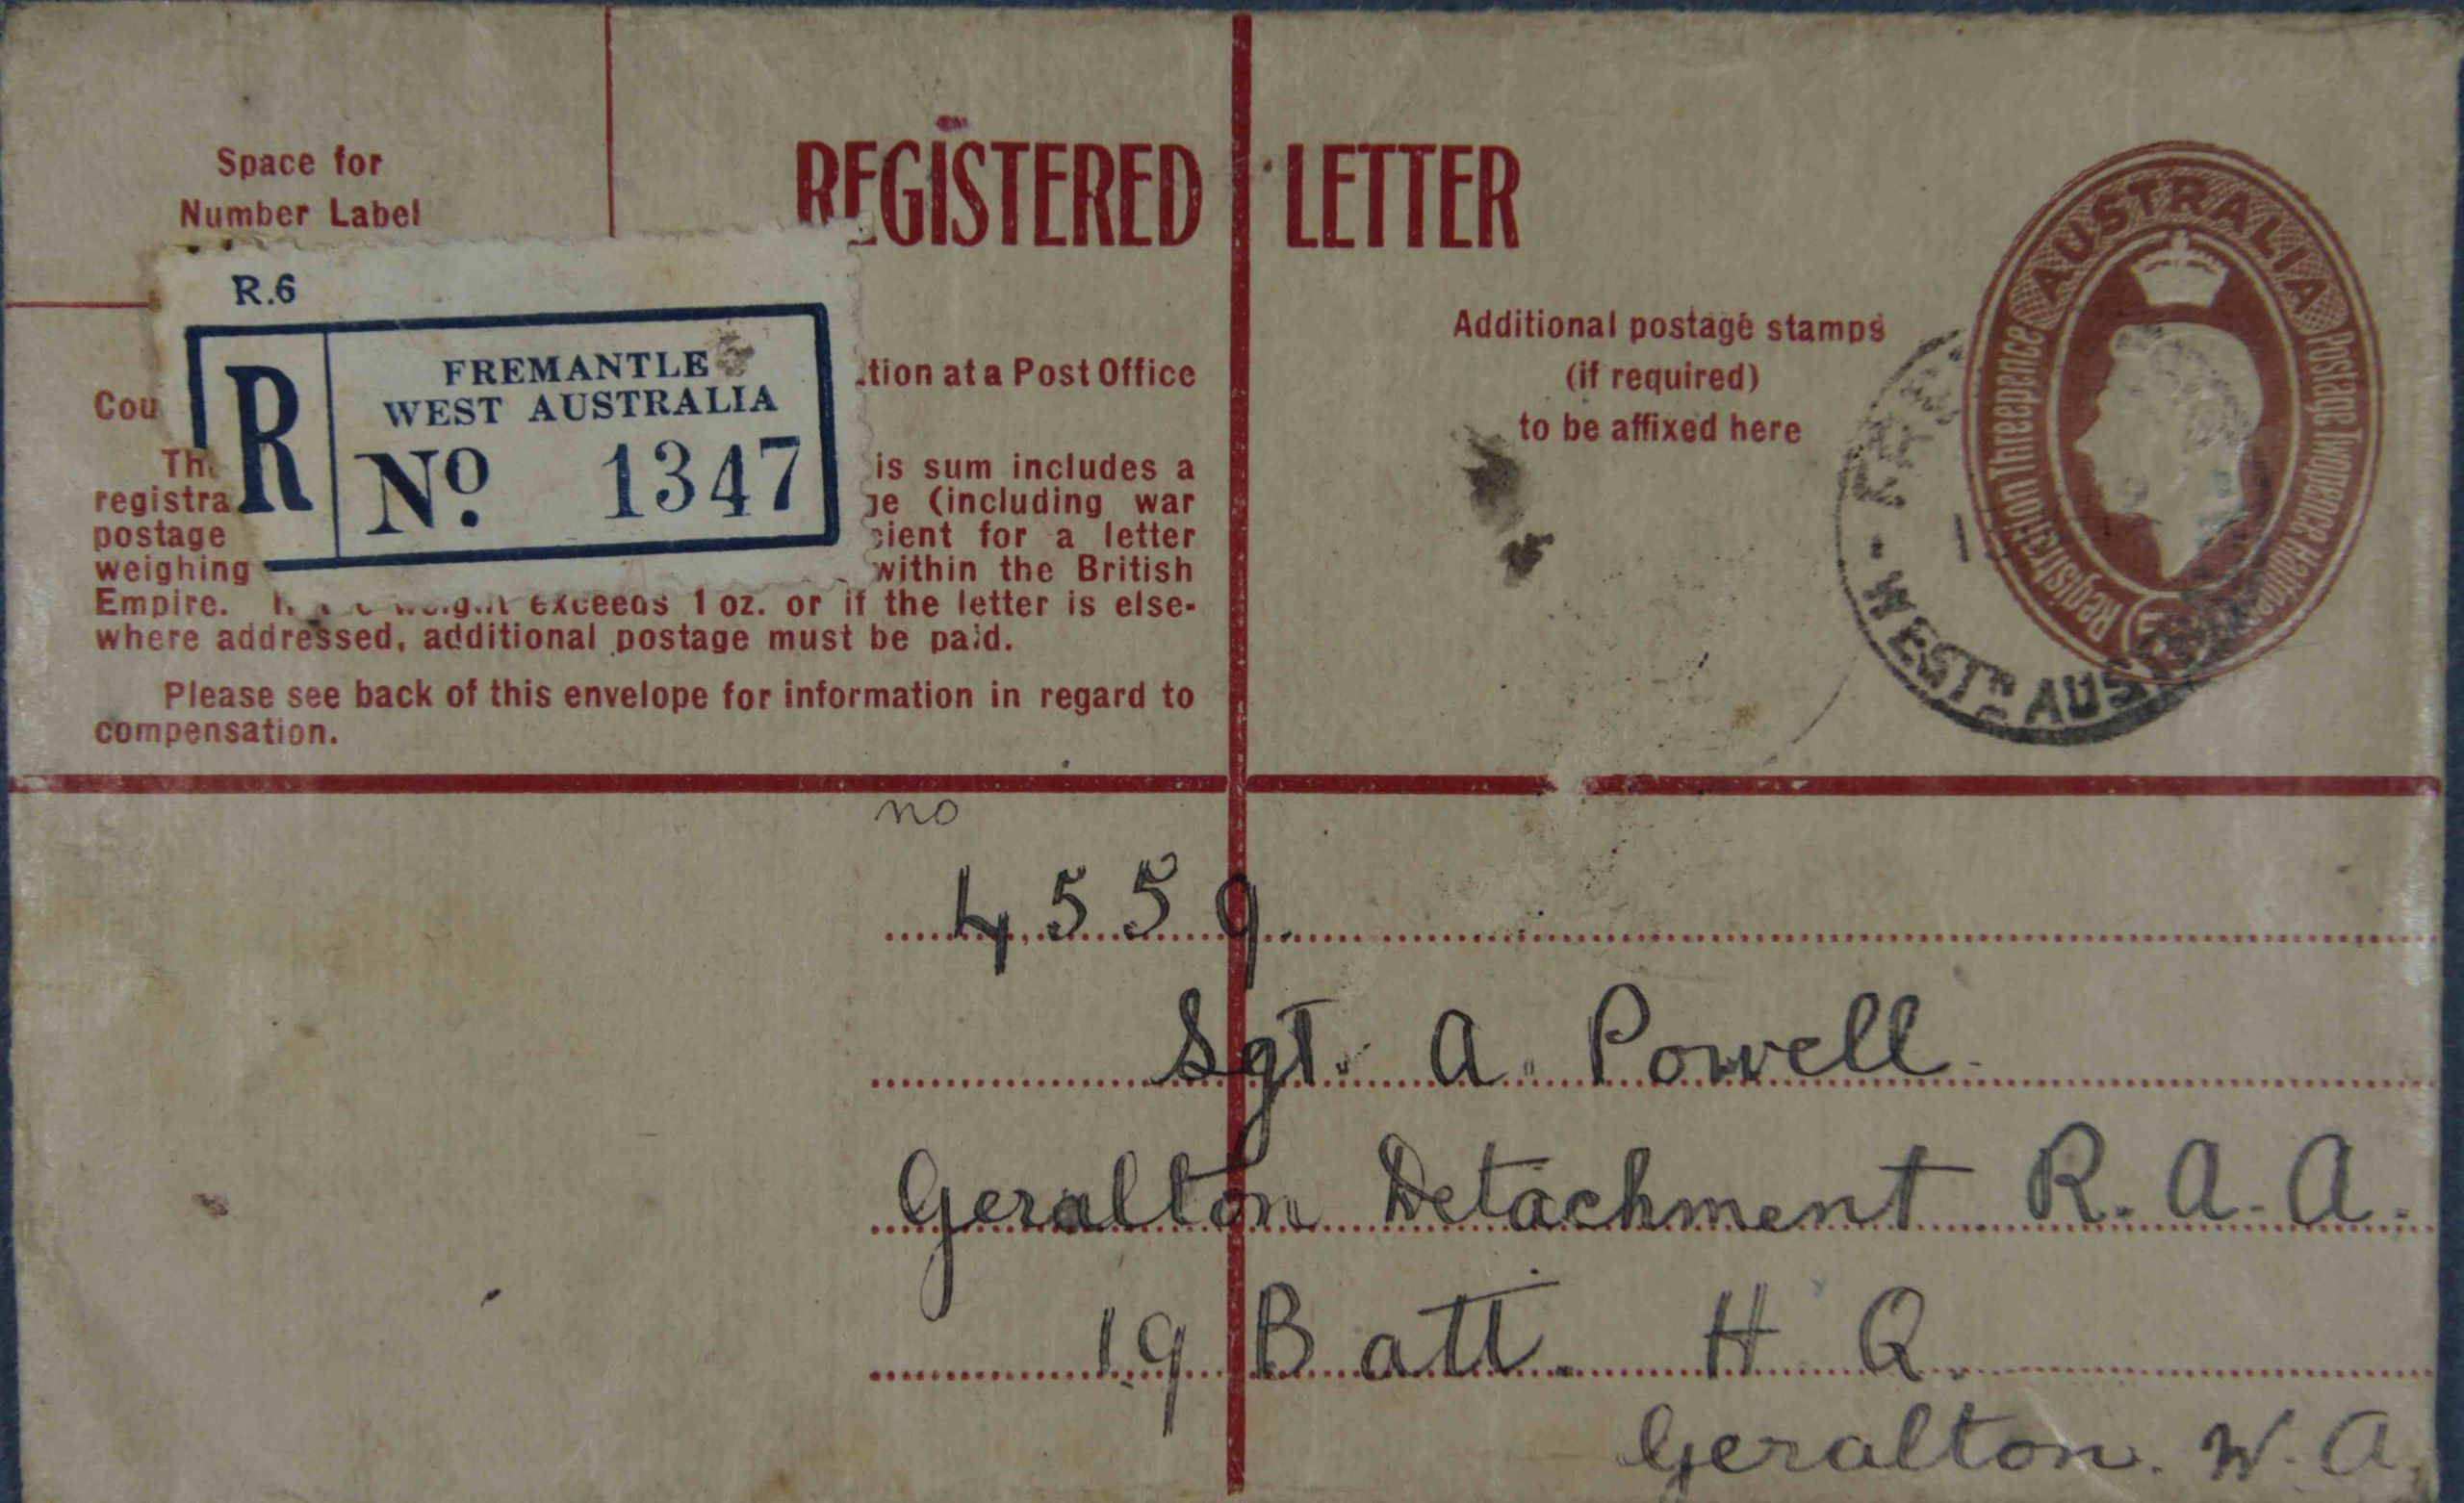 Space for
Number Label
REGISTERED LETTER
R.6
R
FREMANTLE
WEST AUSTRALIA
No. 1347
AUSTRALIA
Registration Threepence
Postage Twopence Halfpenny
Additional postage stamps
(if required)
to be affixed here
at a Post Office
is sum includes a
(including war
postage for a letter
weighing within the British
Empire. exceeds 1 oz. or if the letter is else-
where addressed, additional postage must be paid.
Please see back of this envelope for information in regard to
compensation.
WESTN AUST
no
4559.
Sgt. A. Powell
Geralton Detachment R.A.A.
19 Batt. H Q.
Geralton. W.A.